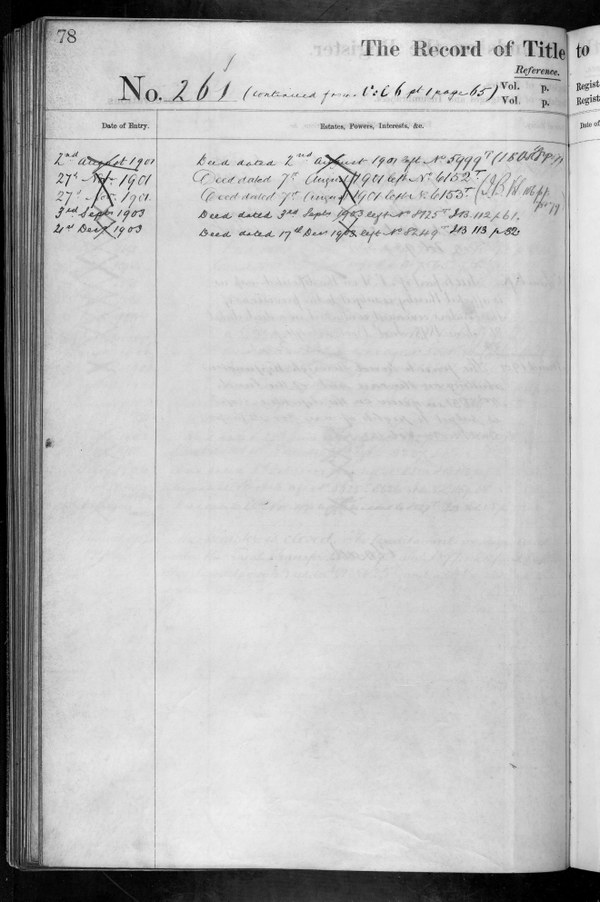 78
The Record of Title to
Reference.
No. 261 (continued from V: 66 pt 1 page 65) Vol. p. Regist
Vol. p. Regist
Date of Entry. Estates, Powers, Interests, &c. Date of
2nd August 1901 Deed dated 2nd August 1901 regd No 5999T
27th Nov 1901 Deed dated 7th August 1901 regd No 6152T
27th Nov 1901 Deed dated 7th August 1901 regd No 6153T
3rd Septr 1903 Deed dated 3rd Septr 1903 regd No 8125T IB 112 p 61.
21st Decr 1903 Deed dated 17th Decr 1903 regd No 8249T IB 113 p 32